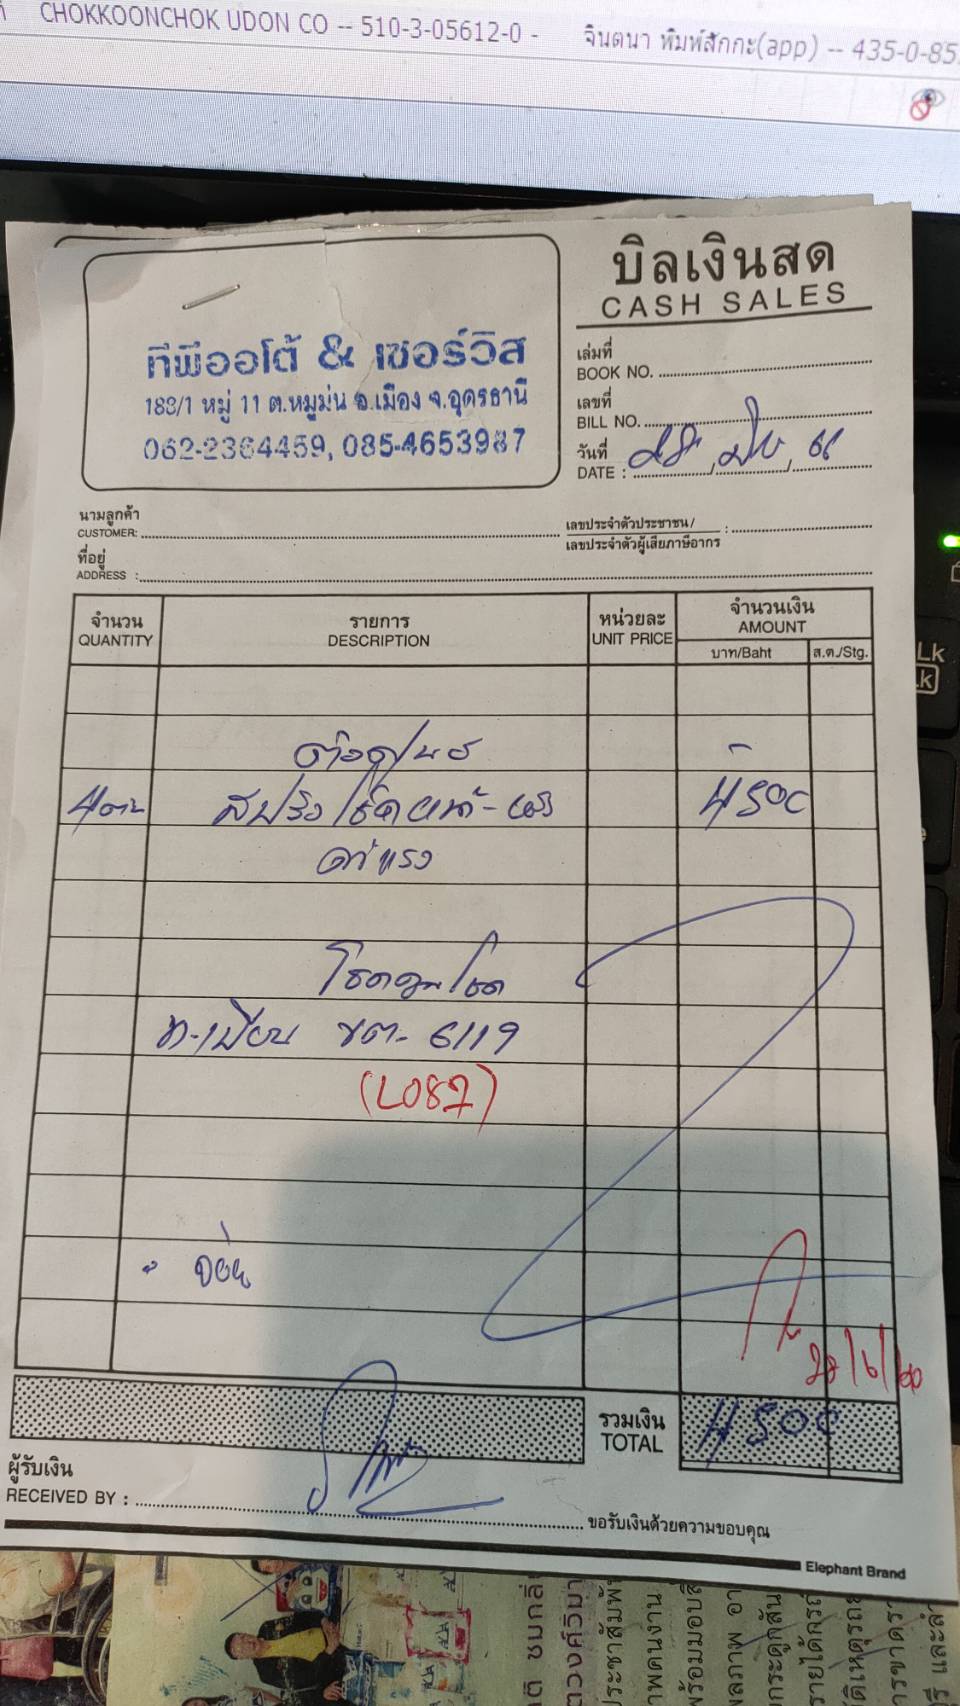 CHOKKOONCHOK UDON CO -- 510-3-05612-0 -
จินตนา พิมพ์สักกะ(app) -- 435-0-85
บิลเงินสด
CASH SALES
ทีพีออโต้ & เซอร์วิส
183/1 หมู่ 11 ต.หมูม่น อ.เมือง จ.อุดรธานี
062-2364459, 085-4653987
เล่มที่
BOOK NO.
เลขที่
BILL NO.
วันที่
DATE :
นามลูกค้า
CUSTOMER:
เลขประจำตัวประชาชน/
เลขประจำตัวผู้เสียภาษีอากร :
ที่อยู่
ADDRESS :
จำนวน
QUANTITY
รายการ
DESCRIPTION
หน่วยละ
UNIT PRICE
จำนวนเงิน
AMOUNT
บาท/Baht
ส.ต./Stg.
สปริงโช๊คหน้า-หลัง 4500
ค่าแรง
โชคคูณโชค
ท.เบียน ขต- 6119
(L087)
28/6/60
รวมเงิน
TOTAL
4500
ผู้รับเงิน
RECEIVED BY :
ขอรับเงินด้วยความขอบคุณ
Elephant Brand